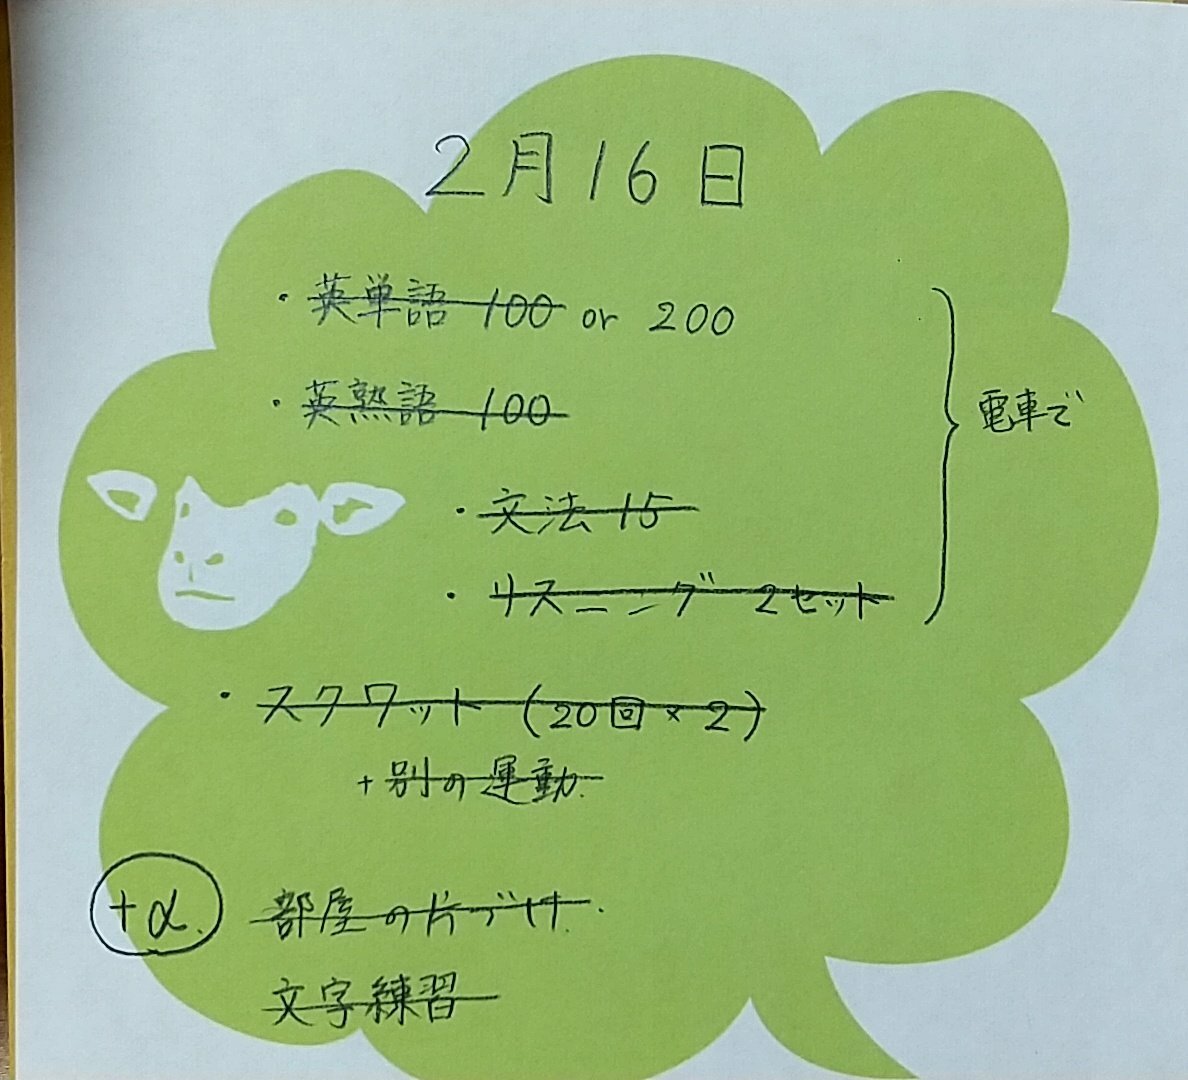 2月16日
・英単語 100 or 200
・英熟語 100
電車で
・文法 15
・リスニング 2セット
・スクワット (20回×2)
+別の運動.
+α. 部屋の片づけ.
文字練習